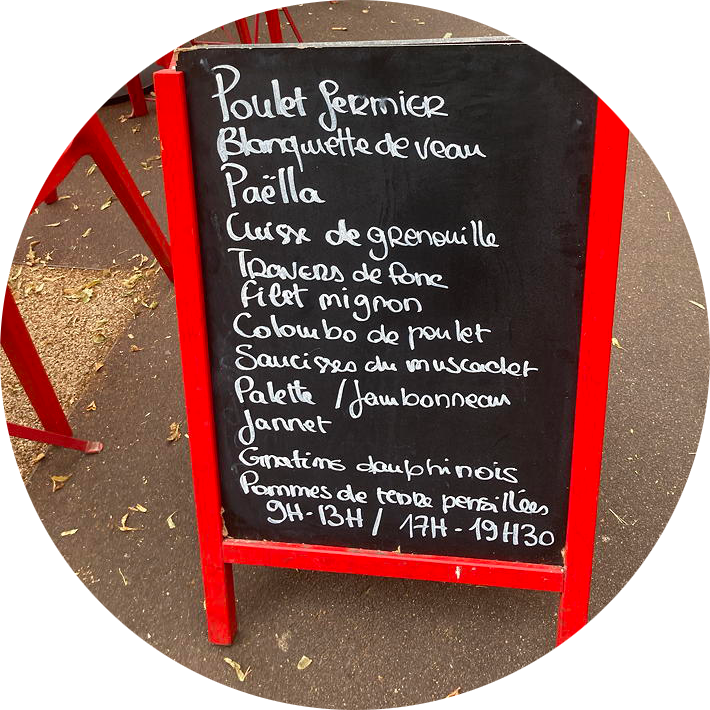 Poulet fermier
Blanquette de veau
Paëlla
Cuisse de grenouille
Travers de Porc
Filet mignon
Colombo de poulet
Saucisses au muscadet
Palette / Jambonneau
Jarret
Gratins dauphinois
Pommes de terre persillées
9H-13H / 17H-19H30